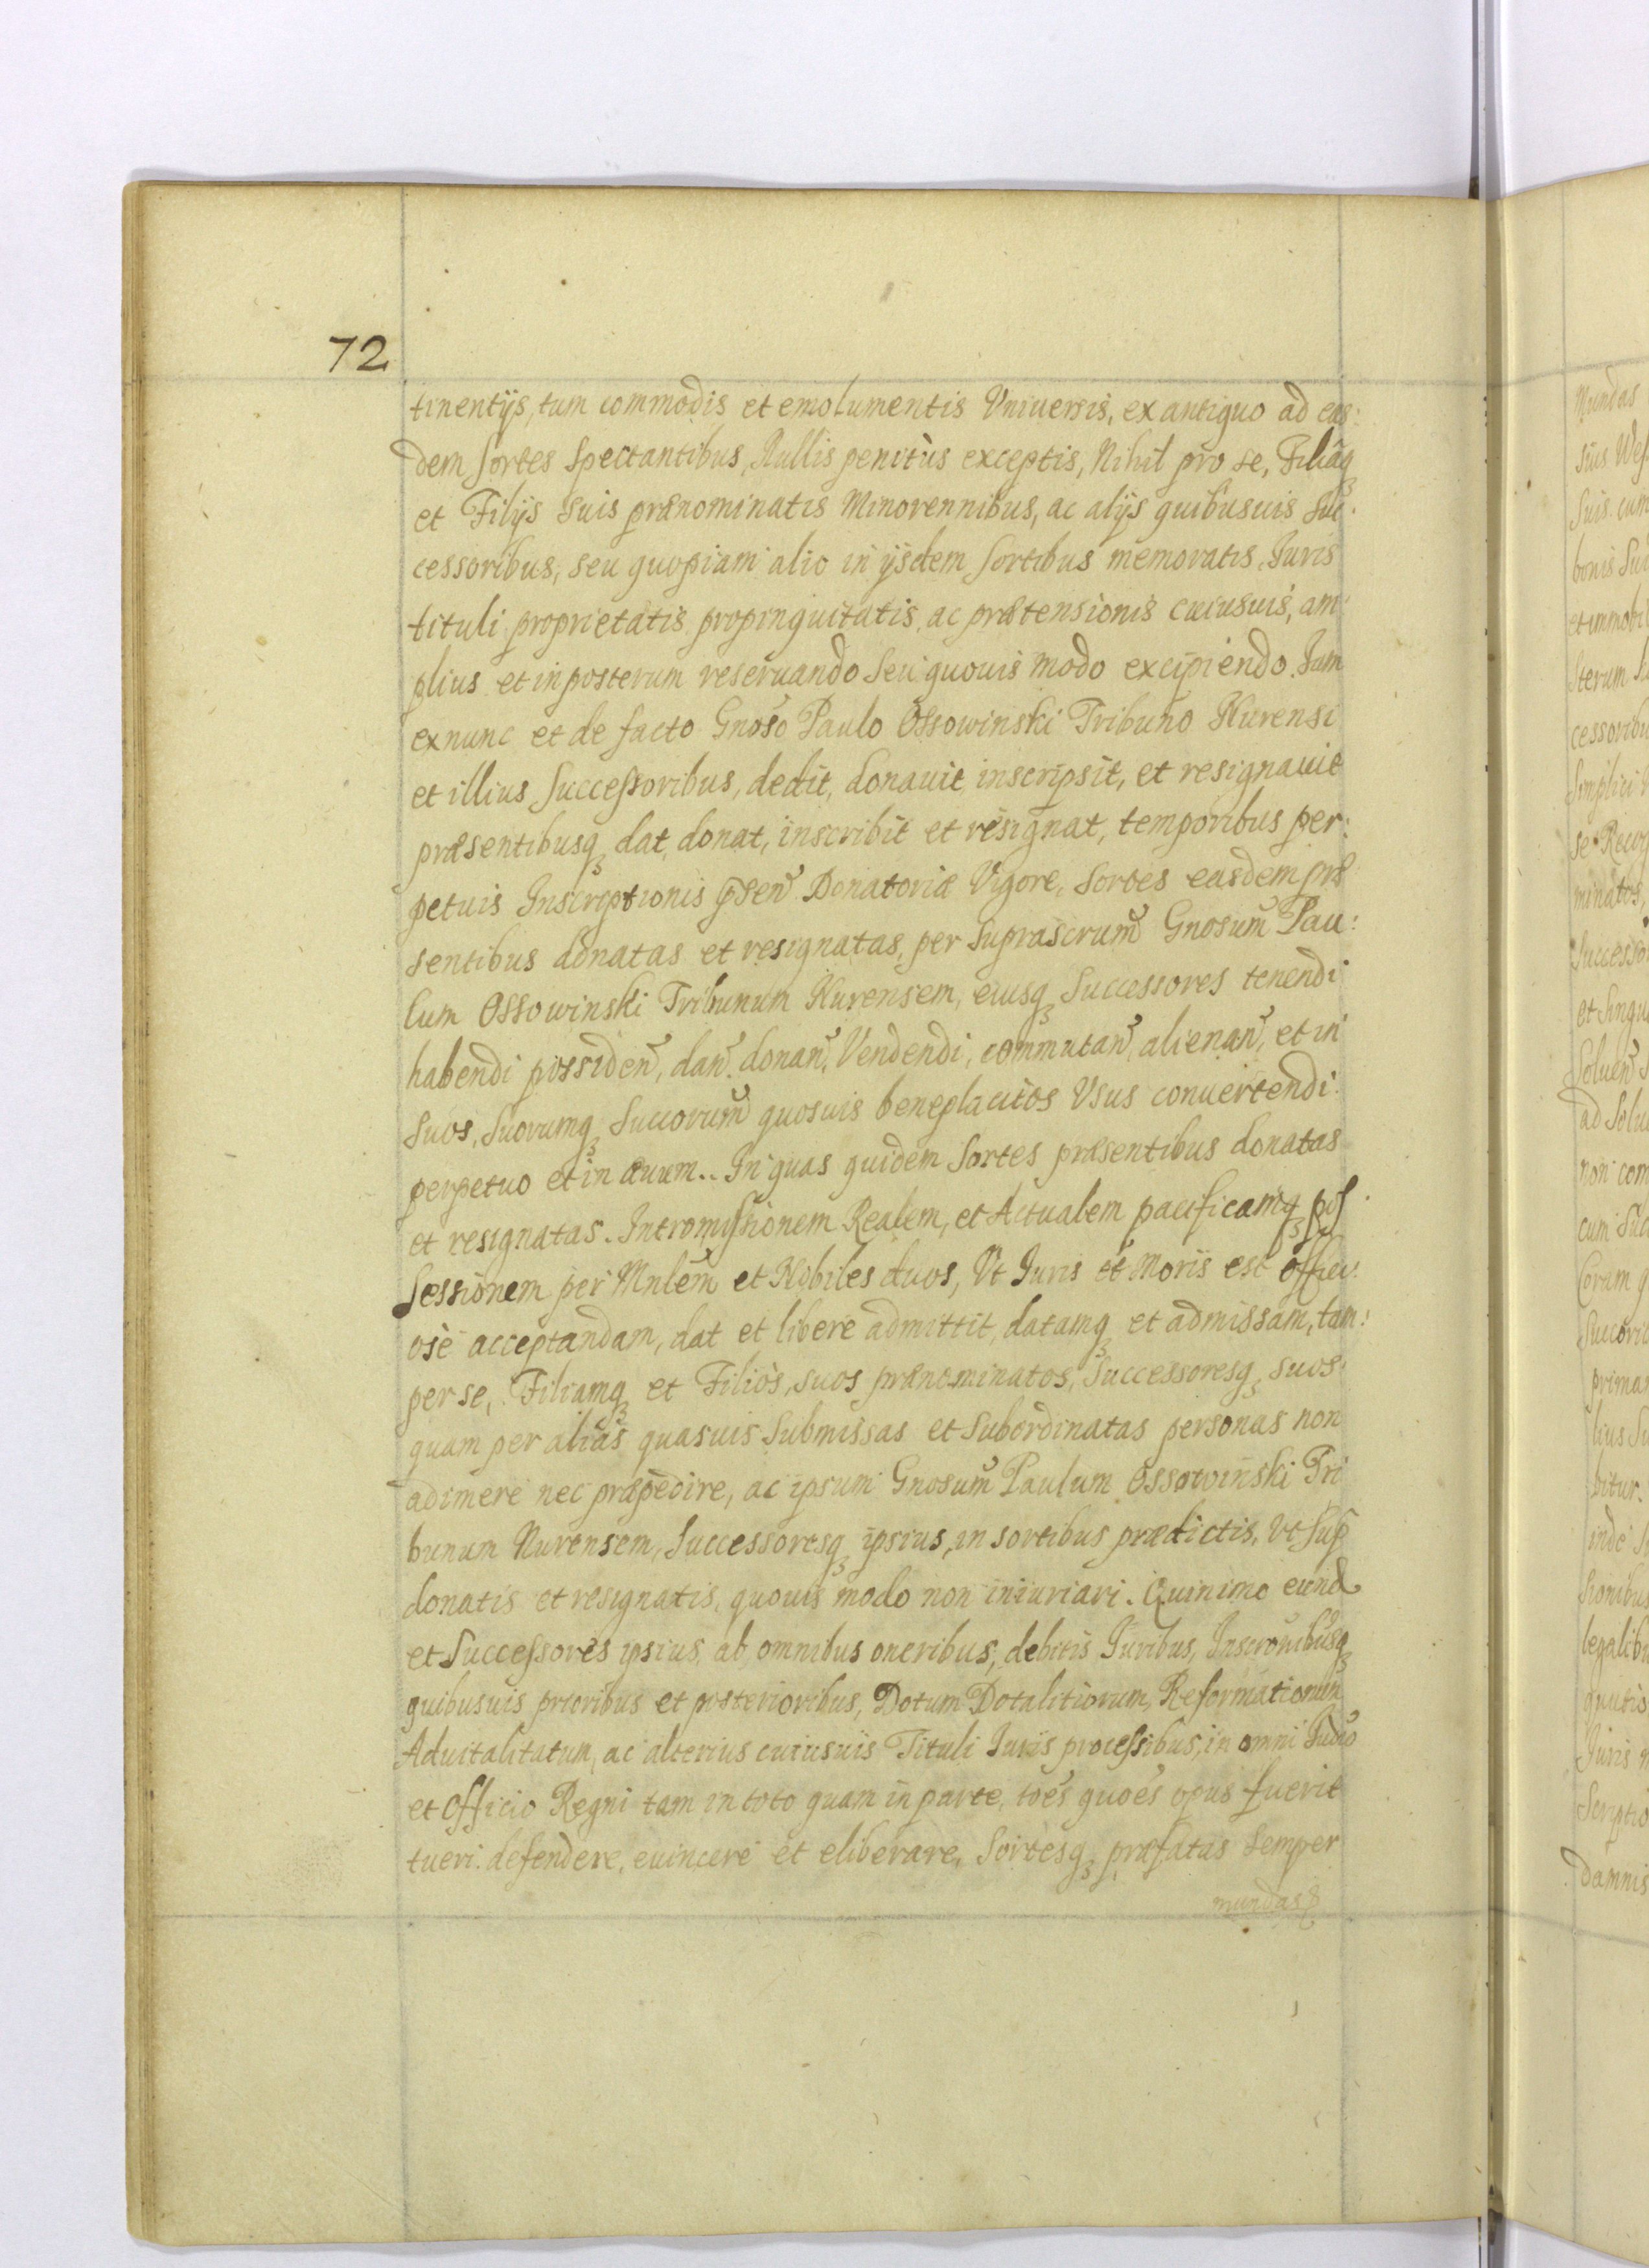 72
tinentijs, tum commodis et emolumentis Vniuersis, ex antiquo ad eas:
dem sortes spectantibus, Nullis penitùs exceptis, Nihil pro se, Filiaq
et Filijs suis prænominatis Minorennibus, ac alijs quibusuis Suc:
cessoribus, seu quopiam alio in ijsdem sortibus memoratis, Iuris
tituli proprietatis propinquitatis, ac prætensionis cuiusuis, am:
plius et in posterum reseruando seu quouis modo excipiendo. Iam
ex nunc et de facto Gnoso Paulo Ossowinski Tribuno Nurensi
et illius Successoribus, dedit, donauit, inscripsit, et resignauit
præsentibusq dat, donat, inscribit et resignat, temporibus per:
petuis Inscriptionis p̃sen Donatoriæ Vigore, sortes easdem præ
sentibus donatas et resignatas, per suprascrum Gnosum Pau:
lum Ossowinski Tribunum Nurensem, eiusq Successores tenendi
habendi possiden, dan, donan, Vendendi, commutan, alienan, et in
suos, suorumq Succorum quosuis beneplacitos Vsus conuertendi
perpetuo et in æuum.. In quas quidem sortes præsentibus donatas
et resignatas. Intromissionem Realem, et Actualem pacificamq pos
sessionem per Mnlem et Nobiles duos, Vt Iuris et Moris est offici:
ose acceptandam, dat et libere admittit, datamq et admissam, tam:
per se, Filiamq et Filiòs, suos prænominatos, Successoresq suos
quam per aliàs quasuis submissas et subordinatas personas non
adimere nec præpedire, ac ipsum Gnosum Paulum Ossowinski Tri
bunum Nurensem, Successoresq ipsius, in sortibus prædictis, vt sup
donatis et resignatis, quouis modo non iniuriari. Quinimo eund
et Successores ipsius, ab omnibus oneribus, debitis Iuribus, Inscronibusq
quibusuis prioribus et posterioribus, Dotum Dotalitiorum, Reformationum
Aduitalitatum, ac alterius cuiusuis Tituli Iuris processibus, in omni Iudio
et Officio Regni tam in toto quam in parte, toẽs quoẽs opus fuerit
tueri. defendere, euincere et eliberare, Sortesq præfatas semper
mundas